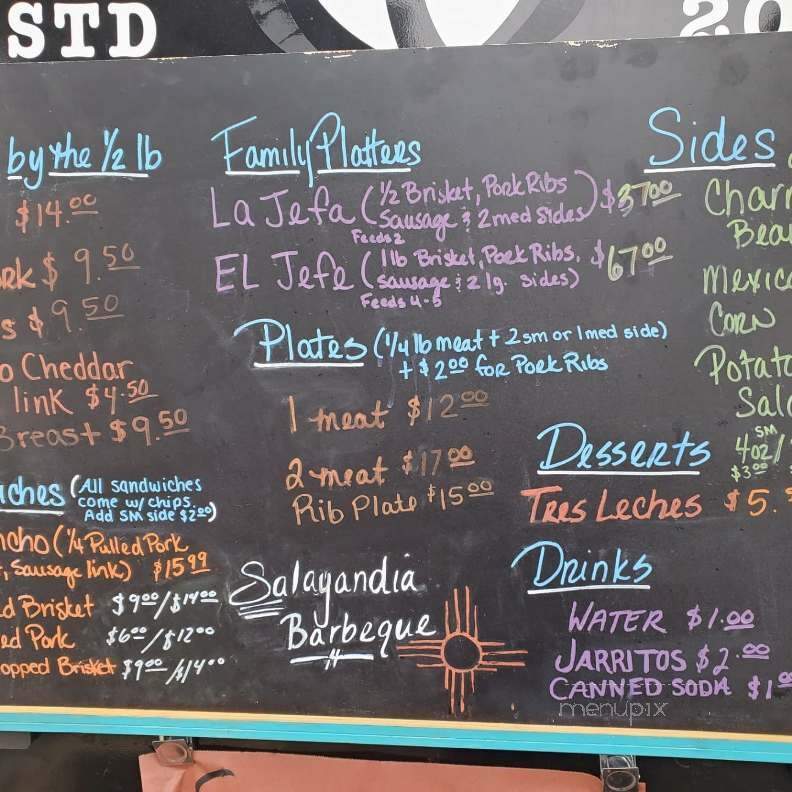 STD
20
by the 1/2 lb
$14.00
$9.50
$9.50
Cheddar
link $4.50
Breast $9.50
(All sandwiches
come w/ chips.
Add SM side $2.00)
(1/4 Pulled Pork
Sausage link) $15.99
Brisket $9.00/$14.00
Pork $6.00/$12.00
Brisket $9.00/$14.00
Family Platters
La Jefa (1/2 Brisket, Pork Ribs
Sausage & 2 med sides) $37.00
Feeds 2
EL Jefe (1 lb Brisket, Pork Ribs,
sausage & 2 lg. sides) $67.00
Feeds 4-5
Plates (1/4 lb meat + 2 sm or 1 med side)
+ $2.00 for Pork Ribs
1 meat $12.00
2 meat $17.00
Rib Plate $15.00
Salayandia
Barbeque
Sides
Corn
SM
4oz/
$3.00
Desserts
Tres Leches $5.
Drinks
WATER $1.00
JARRITOS $2.00
CANNED SODA $1
menupix